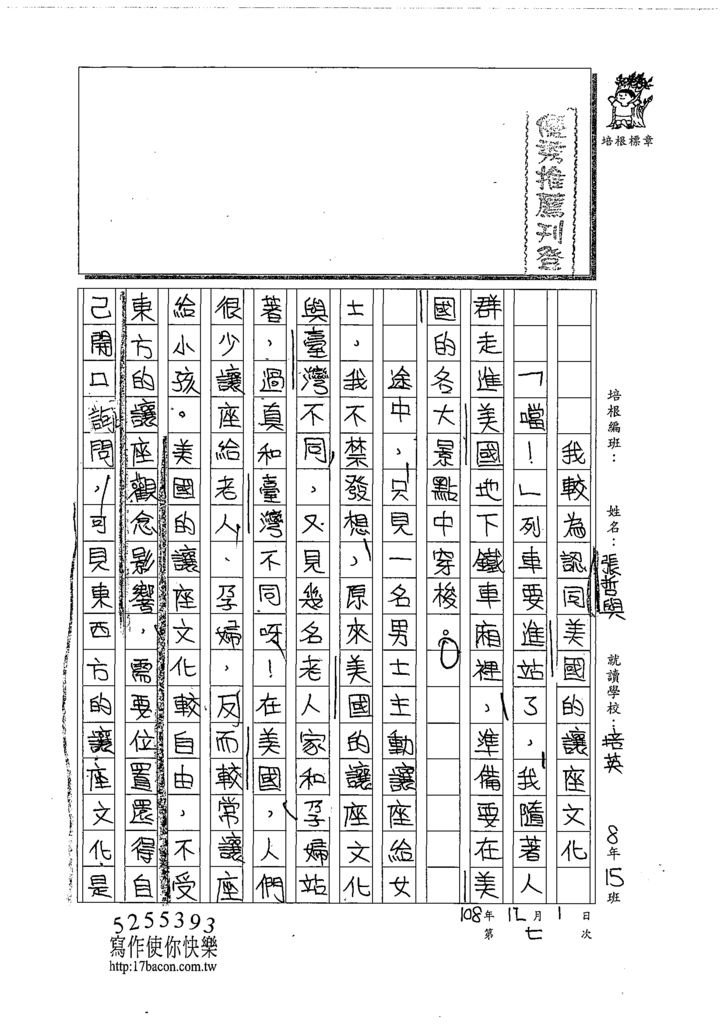 培根標章
優秀推薦刊登
培根編班：
姓名：張哲與
就讀學校：培英
8年15班
108年12月1日
第七次
我較為認同美國的讓座文化
「噹！」列車要進站了，我隨著人
群走進美國地下鐵車廂裡，準備要在美
國的各大景點中穿梭。
途中，只見一名男士主動讓座給女
士，我不禁發想，原來美國的讓座文化
與臺灣不同，又見幾名老人家和孕婦站
著，過真和臺灣不同呀！在美國，人們
很少讓座給老人、孕婦，反而較常讓座
給小孩。美國的讓座文化較自由，不受
東方的讓座觀念影響，需要位置還得自
己開口詢問，可見東西方的讓座文化是
5255393
寫作使你快樂
http:17bacon.com.tw